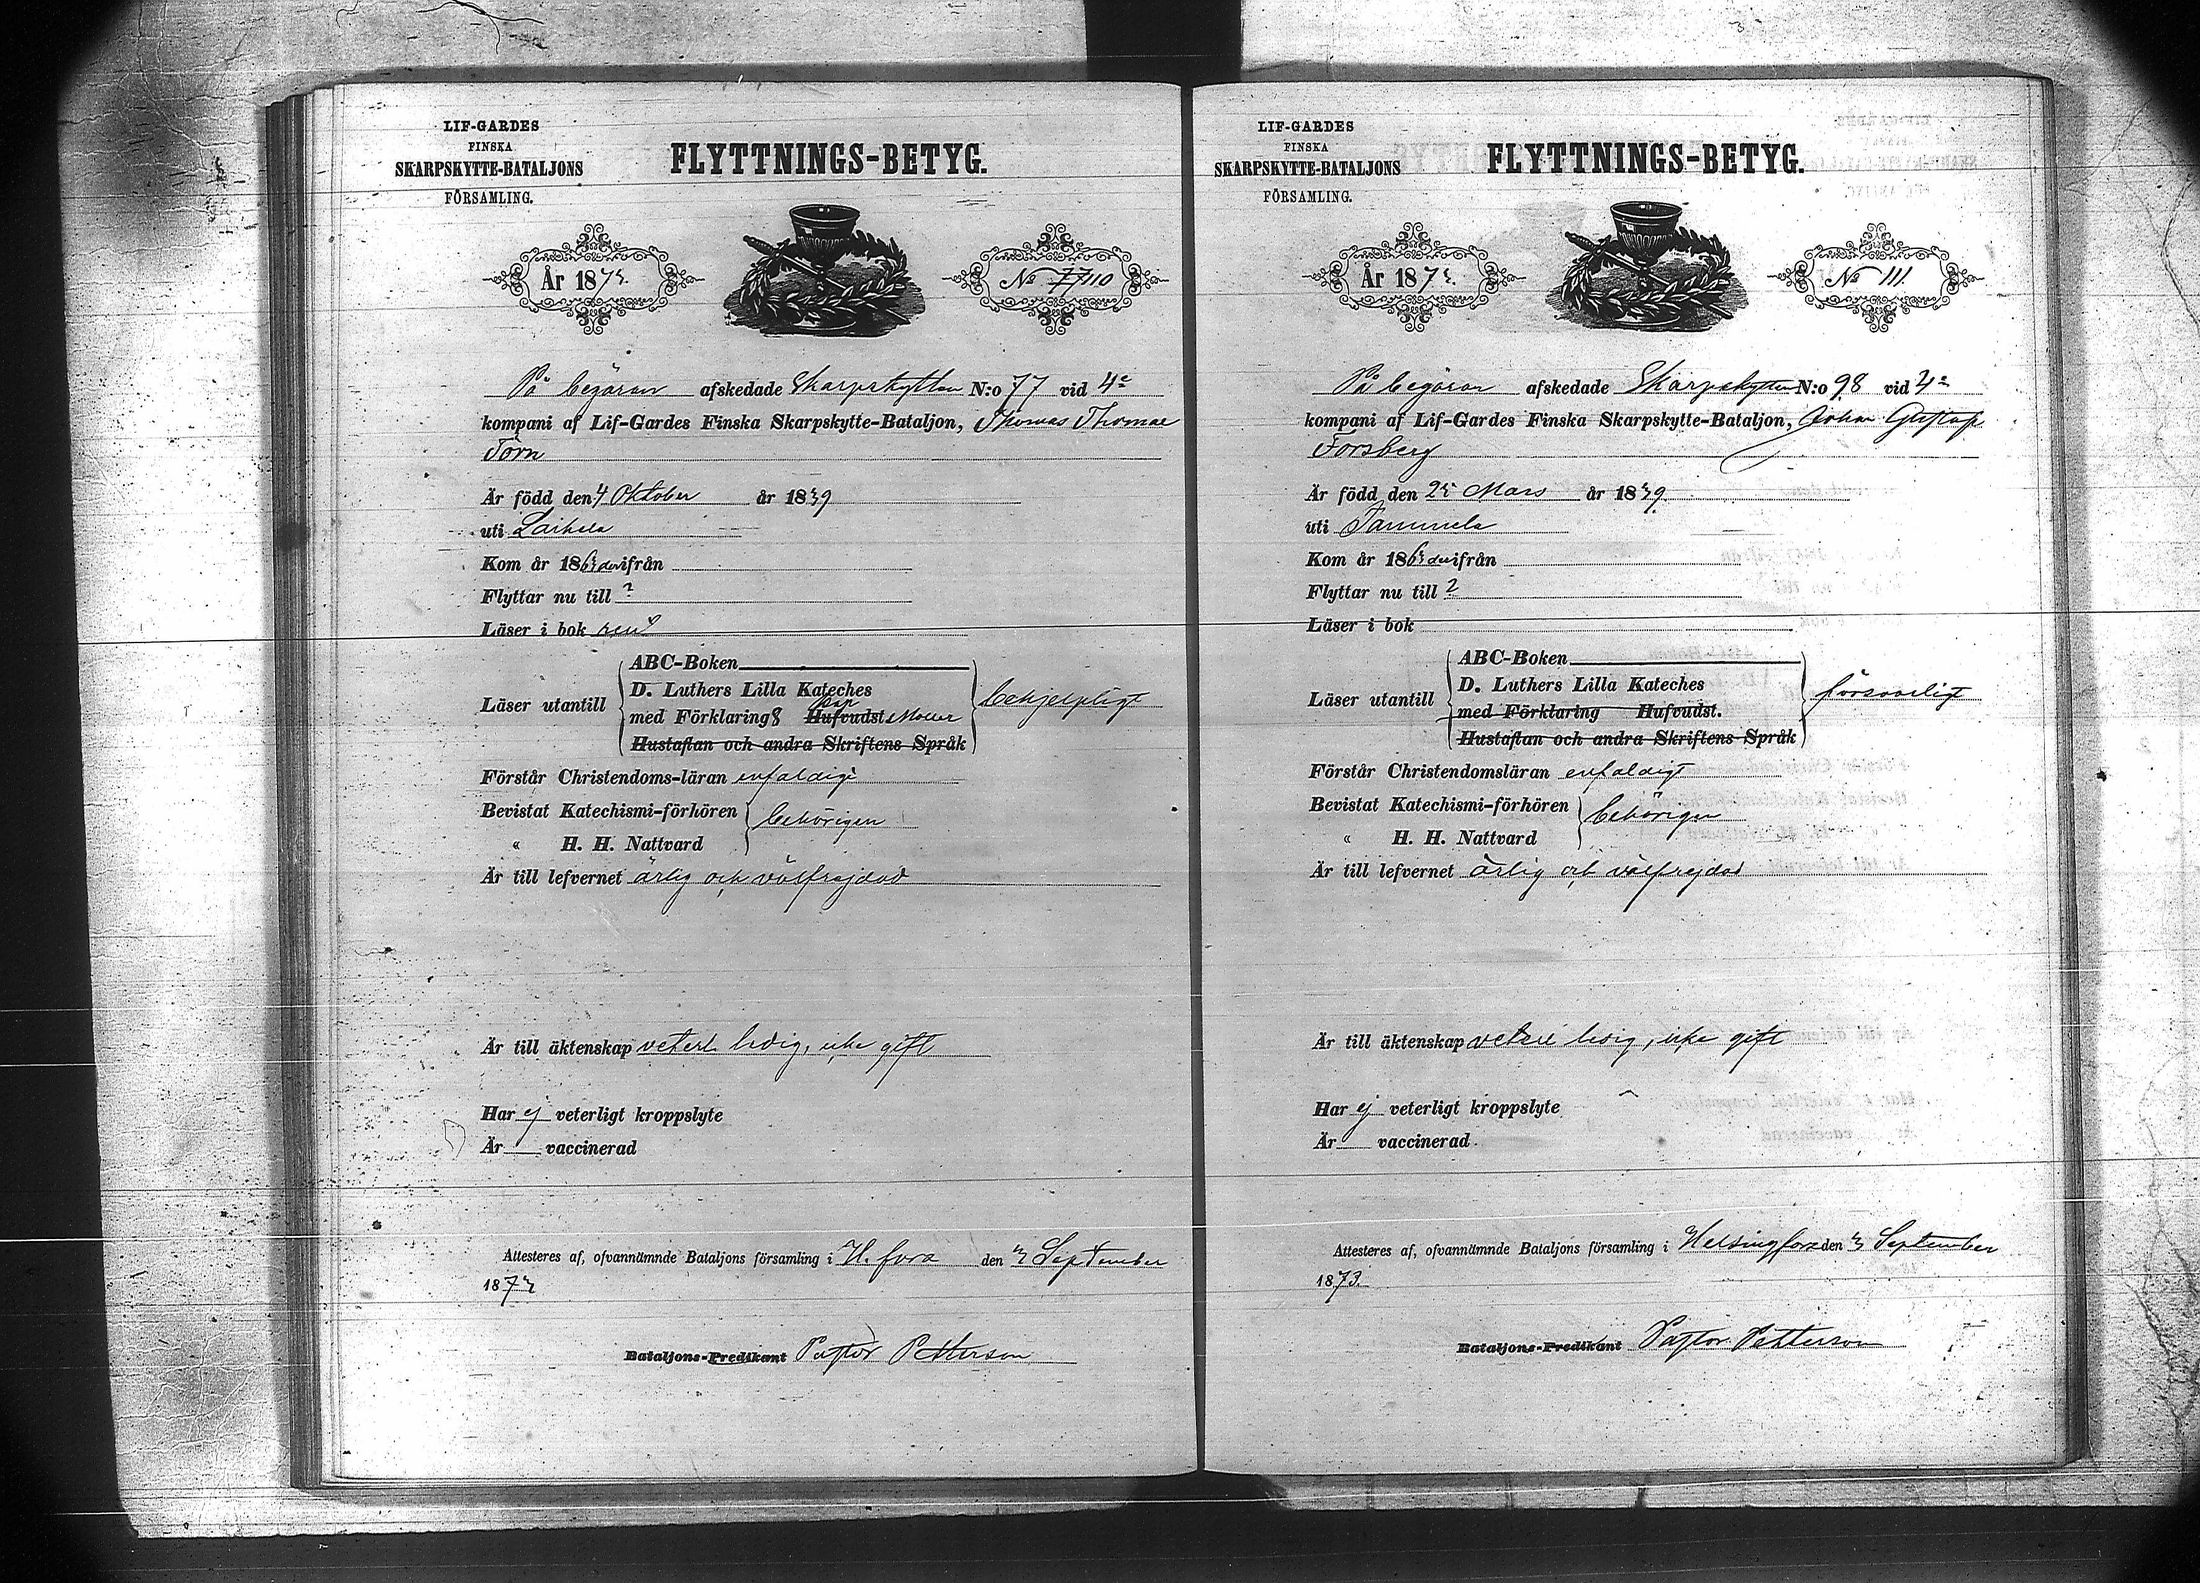 LIF-GARDES
FINSKA
SKARPSKYTTE-BATALJONS
FÖRSAMLING.
FLYTTNINGS-BETYG.
År 1873.
No 77 110
På begäran afskedade Skarpskytten N:o 77 vid 4e
kompani af Lif-Gardes Finska Skarpskytte-Bataljon, Thomas Thomae
Törn
Är född den 4 Oktober år 1839
uti Laihela
Kom år 1863 ifrån
Flyttar nu till ?
Läser i bok rent
ABC-Boken
D. Luthers Lilla Kateches
Läser utantill
med Förklaring 8 Kap Hufvudst. Moller
behjelpligt
Hustaflan och andra Skriftens Språk
Förstår Christendoms-läran enfaldigt
Bevistat Katechismi-förhören
behörigen
« H. H. Nattvard
Är till lefvernet ärlig och välfrejdad
Är till äktenskap veterl. ledig, icke gift
Har ej veterligt kroppslyte
Är vaccinerad
Attesteres af, ofvannämnde Bataljons församling i H.fors den 3 September
1873
Bataljons-Predikant Pastor Petterson
LIF-GARDES
FINSKA
SKARPSKYTTE-BATALJONS
FÖRSAMLING.
FLYTTNINGS-BETYG.
År 1873.
No 111.
På begäran afskedade Skarpskytten N:o 98 vid 4e
kompani af Lif-Gardes Finska Skarpskytte-Bataljon, Johan Gustaf
Forsberg
Är född den 25 Mars år 1839.
uti Tammela
Kom år 1863 ifrån
Flyttar nu till ?
Läser i bok
ABC-Boken
D. Luthers Lilla Kateches
Läser utantill
försvarligt
med Förklaring Hufvudst.
Hustaflan och andra Skriftens Språk
Förstår Christendomsläran enfaldigt
Bevistat Katechismi-förhören
behörigen
« H. H. Nattvard
Är till lefvernet ärlig och välfrejdad
Är till äktenskap ledig, icke gift
Har ej veterligt kroppslyte
Är vaccinerad.
Attesteres af, ofvannämnde Bataljons församling i Helsingfors den 3 September
1873.
Bataljons-Predikant Pastor Petterson